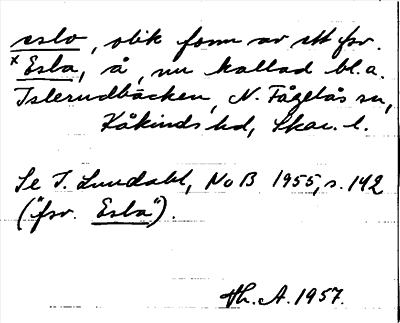 eslo, olik form av ett fsv.
*Esla, å, nu kallad bl.a.
Islerudbäcken, N. Fågelås sn,
Kåkinds hd, Skar. l.
Se I. Lundahl, NoB 1955, s. 142
("fsv. Esla").
Hh. A. 1957.